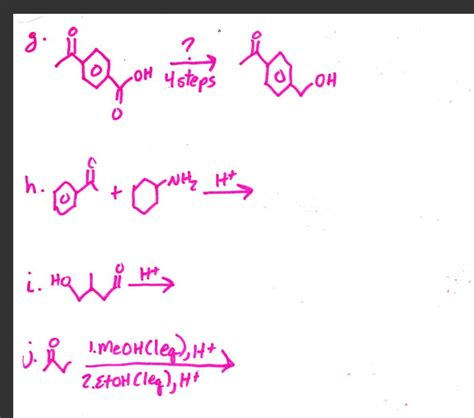 g. O ? O
OH → OH
4 steps
O
h. O + NH2 H+ →
i. HO O H+ →
j. O 1. MeOH (1eq), H+
2. EtOH (1eq), H+